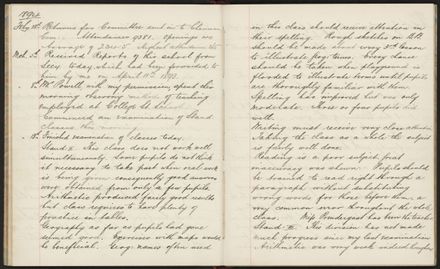 1892
Feby 18th Returns for Committee sent in to Chairman
Attendance 9381. Openings
Average
Mch. 5th Received Report of this school from
Secy today, which had been forwarded to
him by me on April 11th 1892.
Mr Powell, with my permission, spent this
morning observing methods of teaching
employed at College St School.
Commenced an examination of Stand
classes this
Finished examination of classes today.
Stand X. This class does not work well
simultaneously. Lower pupils do not think
it necessary to take part when oral work
is being given, consequently good answers
were obtained from only a few pupils.
Arithmetic produced fairly good results
but class requires to have plenty of
practice in tables.
Geography as far as pupils had gone
seemed good. Exercises with maps would
be beneficial. Geog. names often used
in this class should receive attention in
their spelling. Rough sketches on B.B.
should be made about every 3rd lesson
to illustrate phy. terms. Every chance
should be taken when playground is
flooded to illustrate terms until pupils
are thoroughly familiar with them.
Spelling has improved but was only
moderate. Three or four pupils did
well.
Writing must receive very close attention
Taking the class as a whole the subject
is fairly well done.
Reading is a poor subject, great
inaccuracy was shewn. Pupils should
be trained to read right through a
paragraph without substituting
wrong words for those before them, a
very common error throughout the whole
class. Miss Pendergast has been the teacher
Stand III. This division has not made
much progress since my last examination
Arithmetic was very weak indeed